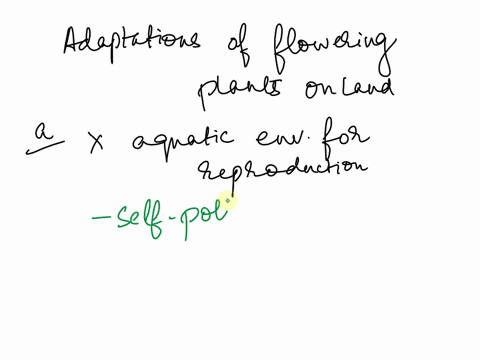 Adaptations of flowering
plants on land
a x aquatic env. for
reproduction
- self-pol